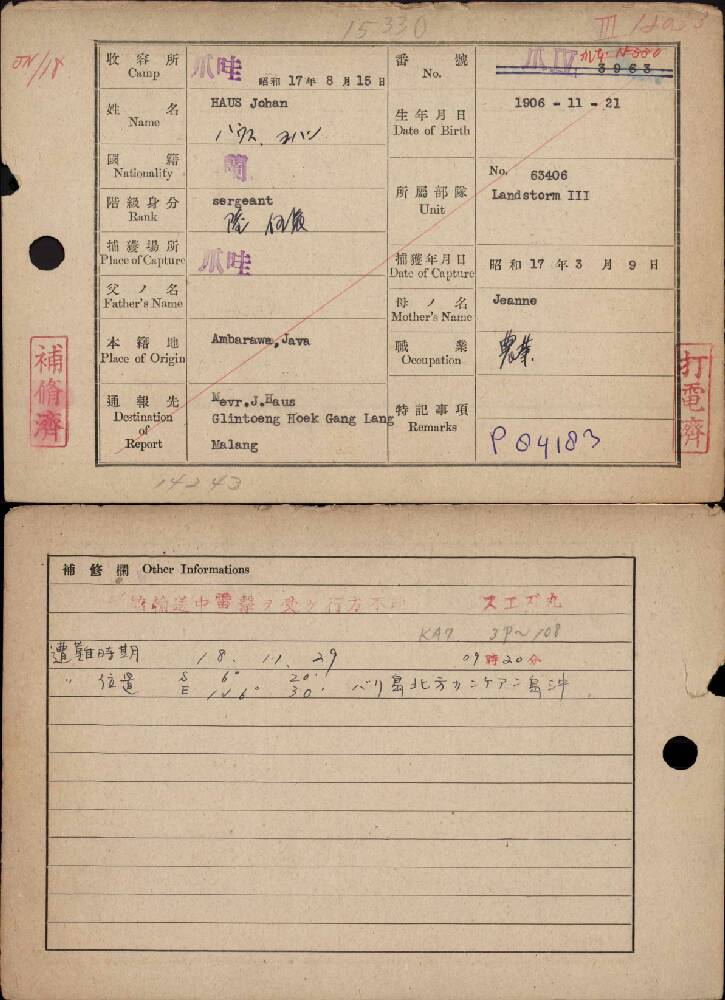 15330
收容所 Camp 爪哇 昭和17年8月15日
番號 No. 爪 IV 3963
姓名 Name HAUS Johan
ハウス、ヨハン
生年月日 Date of Birth 1906 - 11 - 21
國籍 Nationality 蘭
階級身分 Rank sergeant
所屬部隊 Unit No. 63406
Landstorm III
捕獲場所 Place of Capture 爪哇
捕獲年月日 Date of Capture 昭和17年3月9日
父ノ名 Father's Name
母ノ名 Mother's Name Jeanne
本籍地 Place of Origin Ambarawa, Java
職業 Occupation 農業
通報先 Destination of Report Mevr.J.Haus
Glintoeng Hoek Gang Lang
Malang
特記事項 Remarks P 04183
補脩濟
打電濟
14243
補修欄 Other Informations
輸送中雷擊ヲ受ケ行方不 スエズ丸
遭難時期 18. 11. 29 09時20分
〃 位置 S 6° 20'
E 30' バリ島北方カンケアン島沖